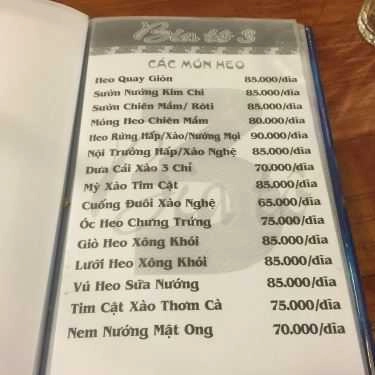 Bia số 3
CÁC MÓN HEO
Heo Quay Giòn 85.000/dĩa
Sườn Nướng Kim Chi 85.000/dĩa
Sườn Chiên Mắm/ Rôti 85.000/dĩa
Móng Heo Chiên Mắm 80.000/dĩa
Heo Rừng Hấp/Xào/Nướng Mọi 90.000/dĩa
Nội Trường Hấp/Xào Nghệ 85.000/dĩa
Dưa Cải Xào 3 Chỉ 70.000/dĩa
Mỳ Xào Tim Cật 85.000/dĩa
Cuống Đuôi Xào Nghệ 65.000/dĩa
Óc Heo Chưng Trứng 75.000/dĩa
Giò Heo Xông Khói 85.000/dĩa
Lưỡi Heo Xông Khói 85.000/dĩa
Vú Heo Sữa Nướng 85.000/dĩa
Tim Cật Xào Thơm Cà 75.000/dĩa
Nem Nướng Mật Ong 70.000/dĩa